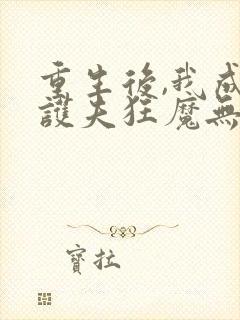 重生後,我成
護夫狂魔無
寶拉